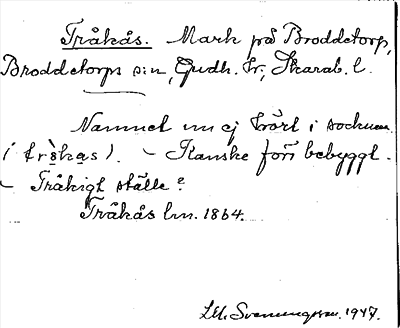 Tråkås. Mark på Broddetorp,
Broddetorps s:n, Gudh. hr., Skarab. l.
Namnet nu ej hört i socknen
( trå̀kas ). – Kanske förr bebyggt.
– Tråkigt ställe?
Tråkås lm. 1864.
Svenungsson. 1947.